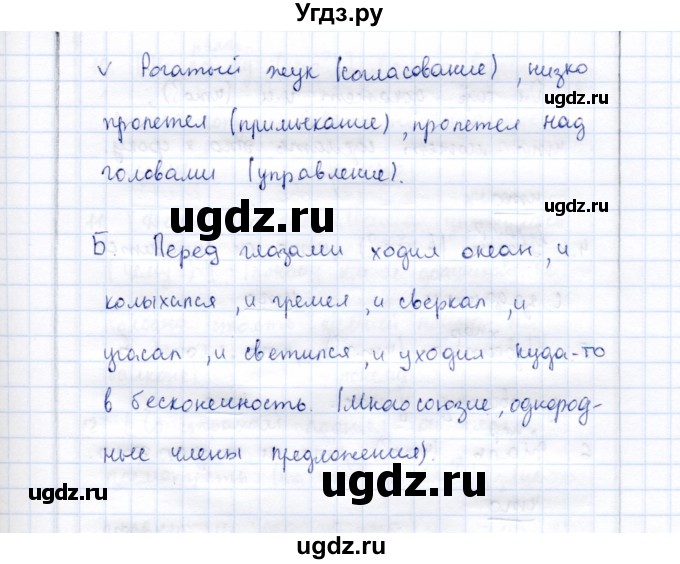 Угдз.ру
√ Рогатый жук (согласование), низко
ugdz.ru
пролетел (примыкание), пролетел над
ugdz.ru
головами (управление).
ugdz.ru
Б. Перед глазами ходил океан, и
колыхался, и гремел, и сверкал, и
угасал, и светился, и уходил куда-то
в бесконечность. (Многосоюзие, однород-
ные члены предложения).
ugdz.ru
ugdz.ru
ugdz.ru
ugdz.ru